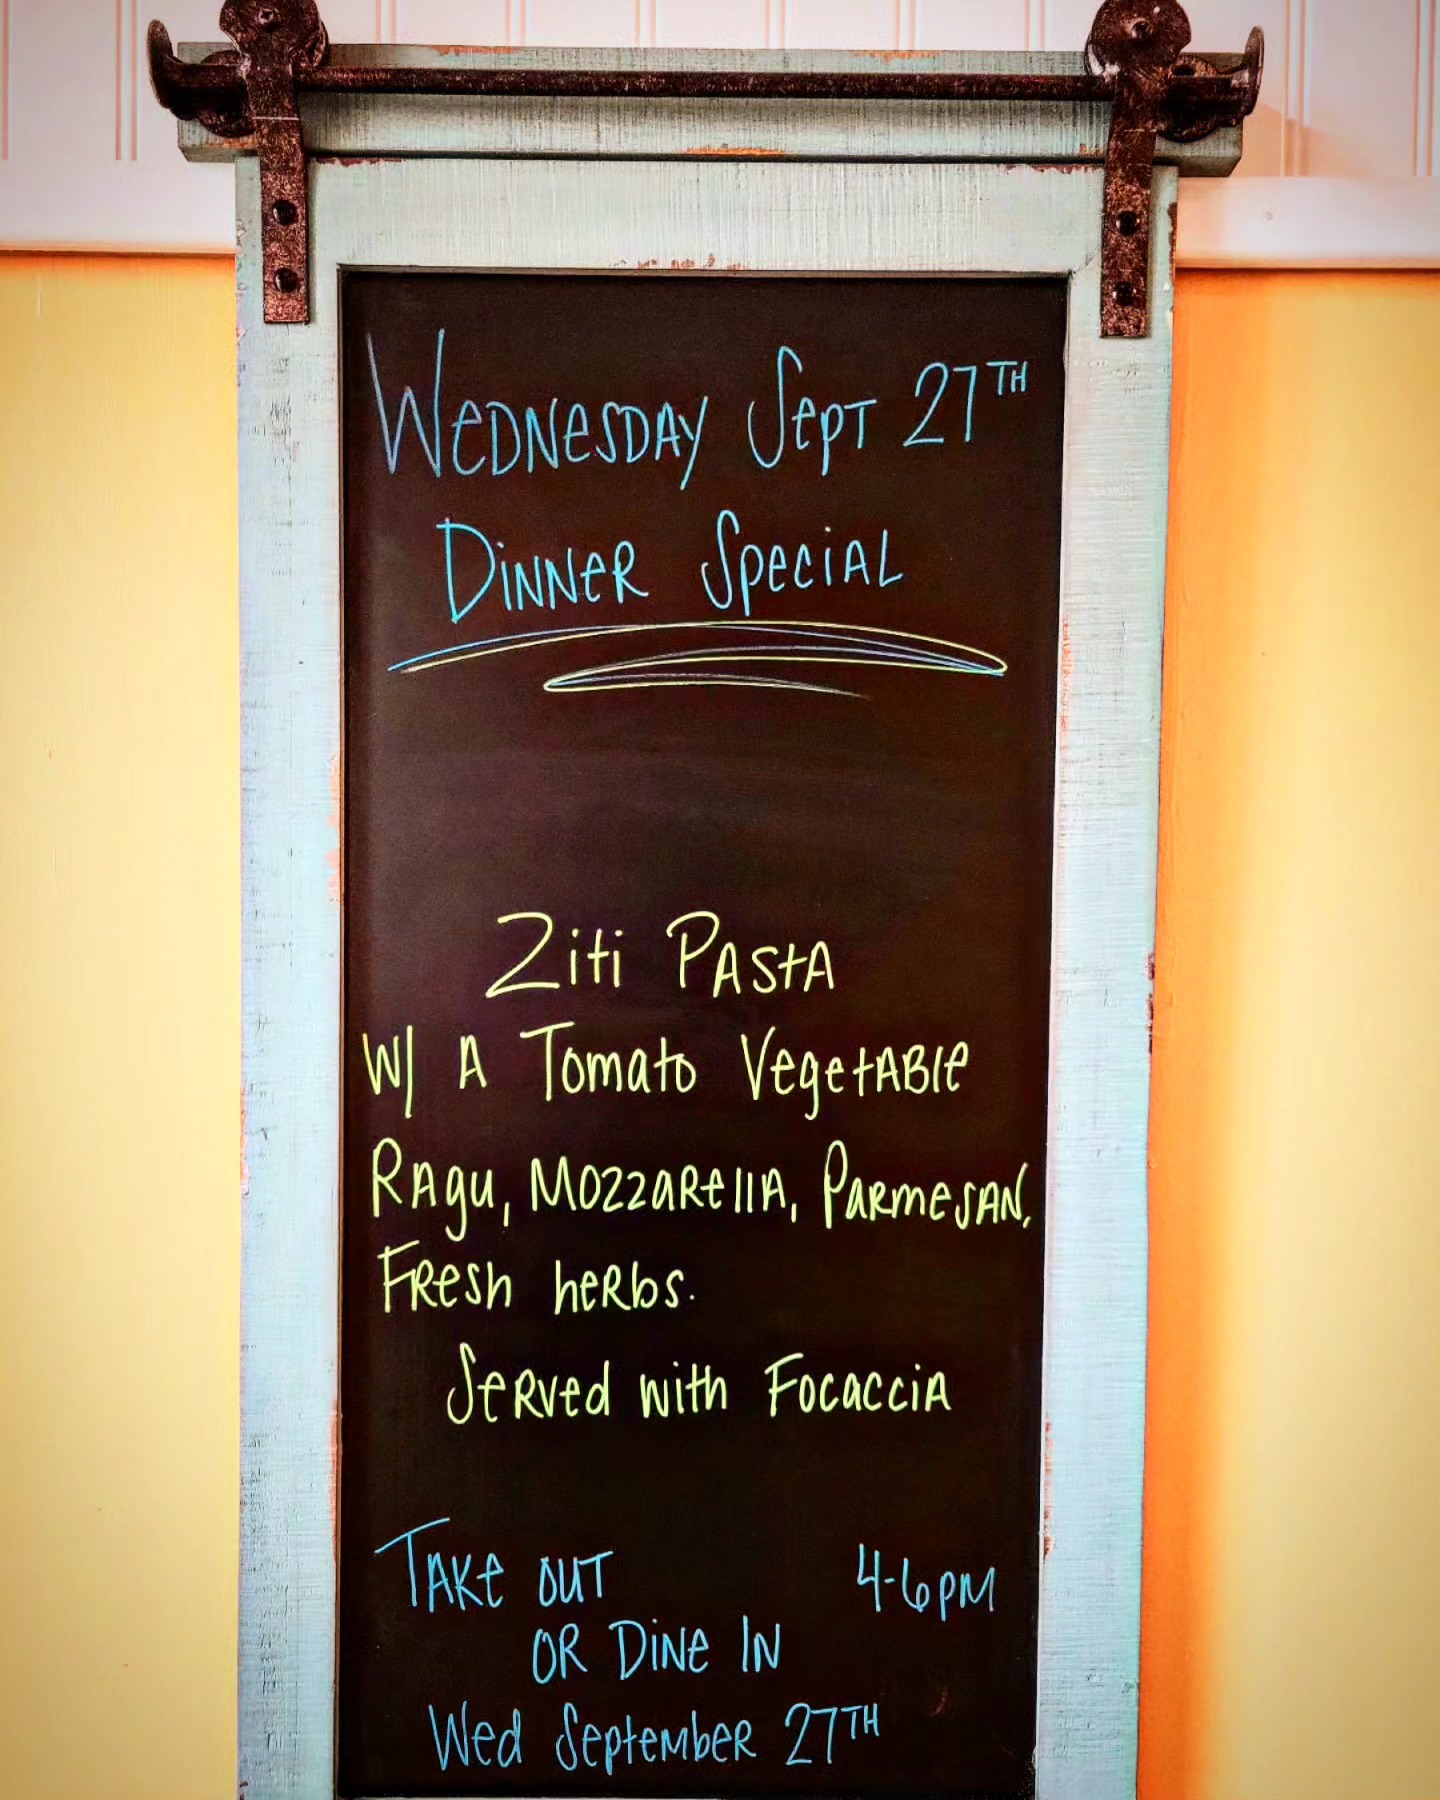 Wednesday Sept 27TH
Dinner Special
Ziti Pasta
W/ A Tomato Vegetable
Ragu, Mozzarella, Parmesan,
Fresh herbs.
Served with Focaccia
Take out 4-6pm
or Dine In
Wed September 27TH